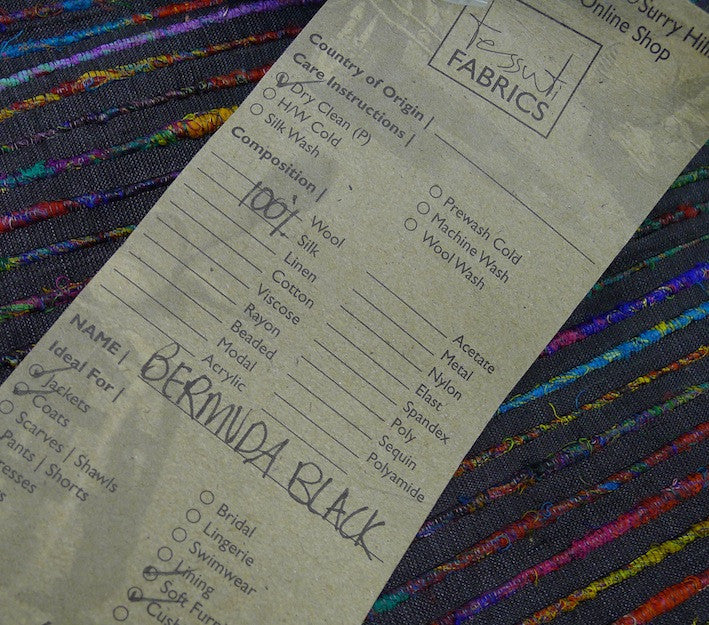 Surry Hil
Online Shop
Tessuti
FABRICS
Country of Origin |
Care Instructions |
Dry Clean (P)
H/W Cold
Silk Wash
Prewash Cold
Machine Wash
Wool Wash
Composition |
Wool
100% Silk
Linen
Cotton
Viscose
Rayon
Beaded
Modal
Acrylic
Acetate
Metal
Nylon
Elast
Spandex
Poly
Sequin
Polyamide
NAME | BERMUDA BLACK
Ideal For |
Jackets
Coats
Scarves | Shawls
Pants | Shorts
resses
Bridal
Lingerie
Swimwear
Lining
Soft Furni
Cush